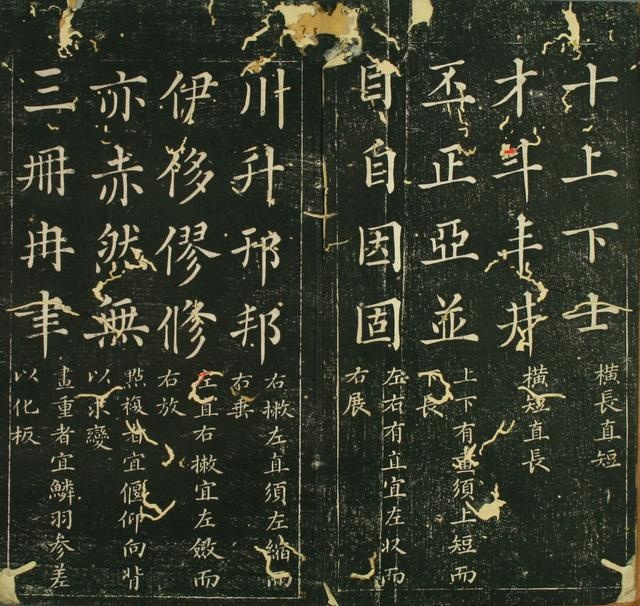 十上下士
橫長直短
才斗丰井
橫短直長
丕正亞並
上下有畫須上短而
下長
目自因固
左右有直宜左收而
右展
川升邢邦
右撇左直須左縮而
右垂
伊侈僇修
左直右撇宜左斂而
右放
亦赤然無
點複者宜偃仰向背
以求變
三冊冉聿
畫重者宜鱗羽參差
以化板